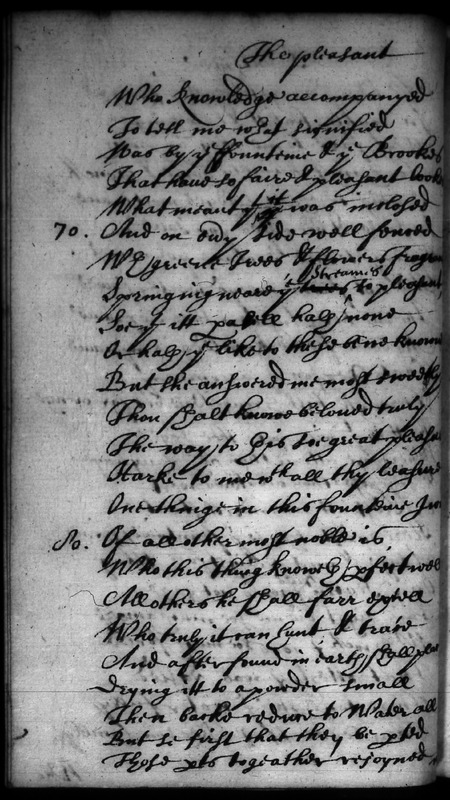 The pleasant
Who knowledge accompanyed
To tell me what signified
Was by yͤ ffounteine & yͤ Brookes
That have so faire & pleasant
What meant it was inclosed
70. And on evy side well fenced
Wth greene Trees & flowers
Springing neare yͤ trees streames to pleasant
Soe yt itt
Or hath yͤ like to these bene
But she answered me most sweetly
Thou shalt knowe beloved truly
The way to this soe great
Harke to me wth all thy leasure
One thinge in this founteine
80. Of all other most noble is
Who this thing knoweth pfect well
All others he shall farr exsell
Who truly it can hunt & trace
And after found in earth shall
Drying itt to a powder small
Then backe reduce to Water all
But se first that they be pted
Those pts togeather rejoyned